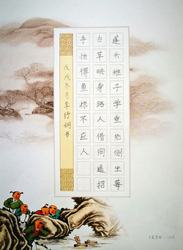 蓬头稚子学垂纶侧坐莓
苔草映身路人借问遥招
手怕得鱼惊不应人
戊戌冬月
书